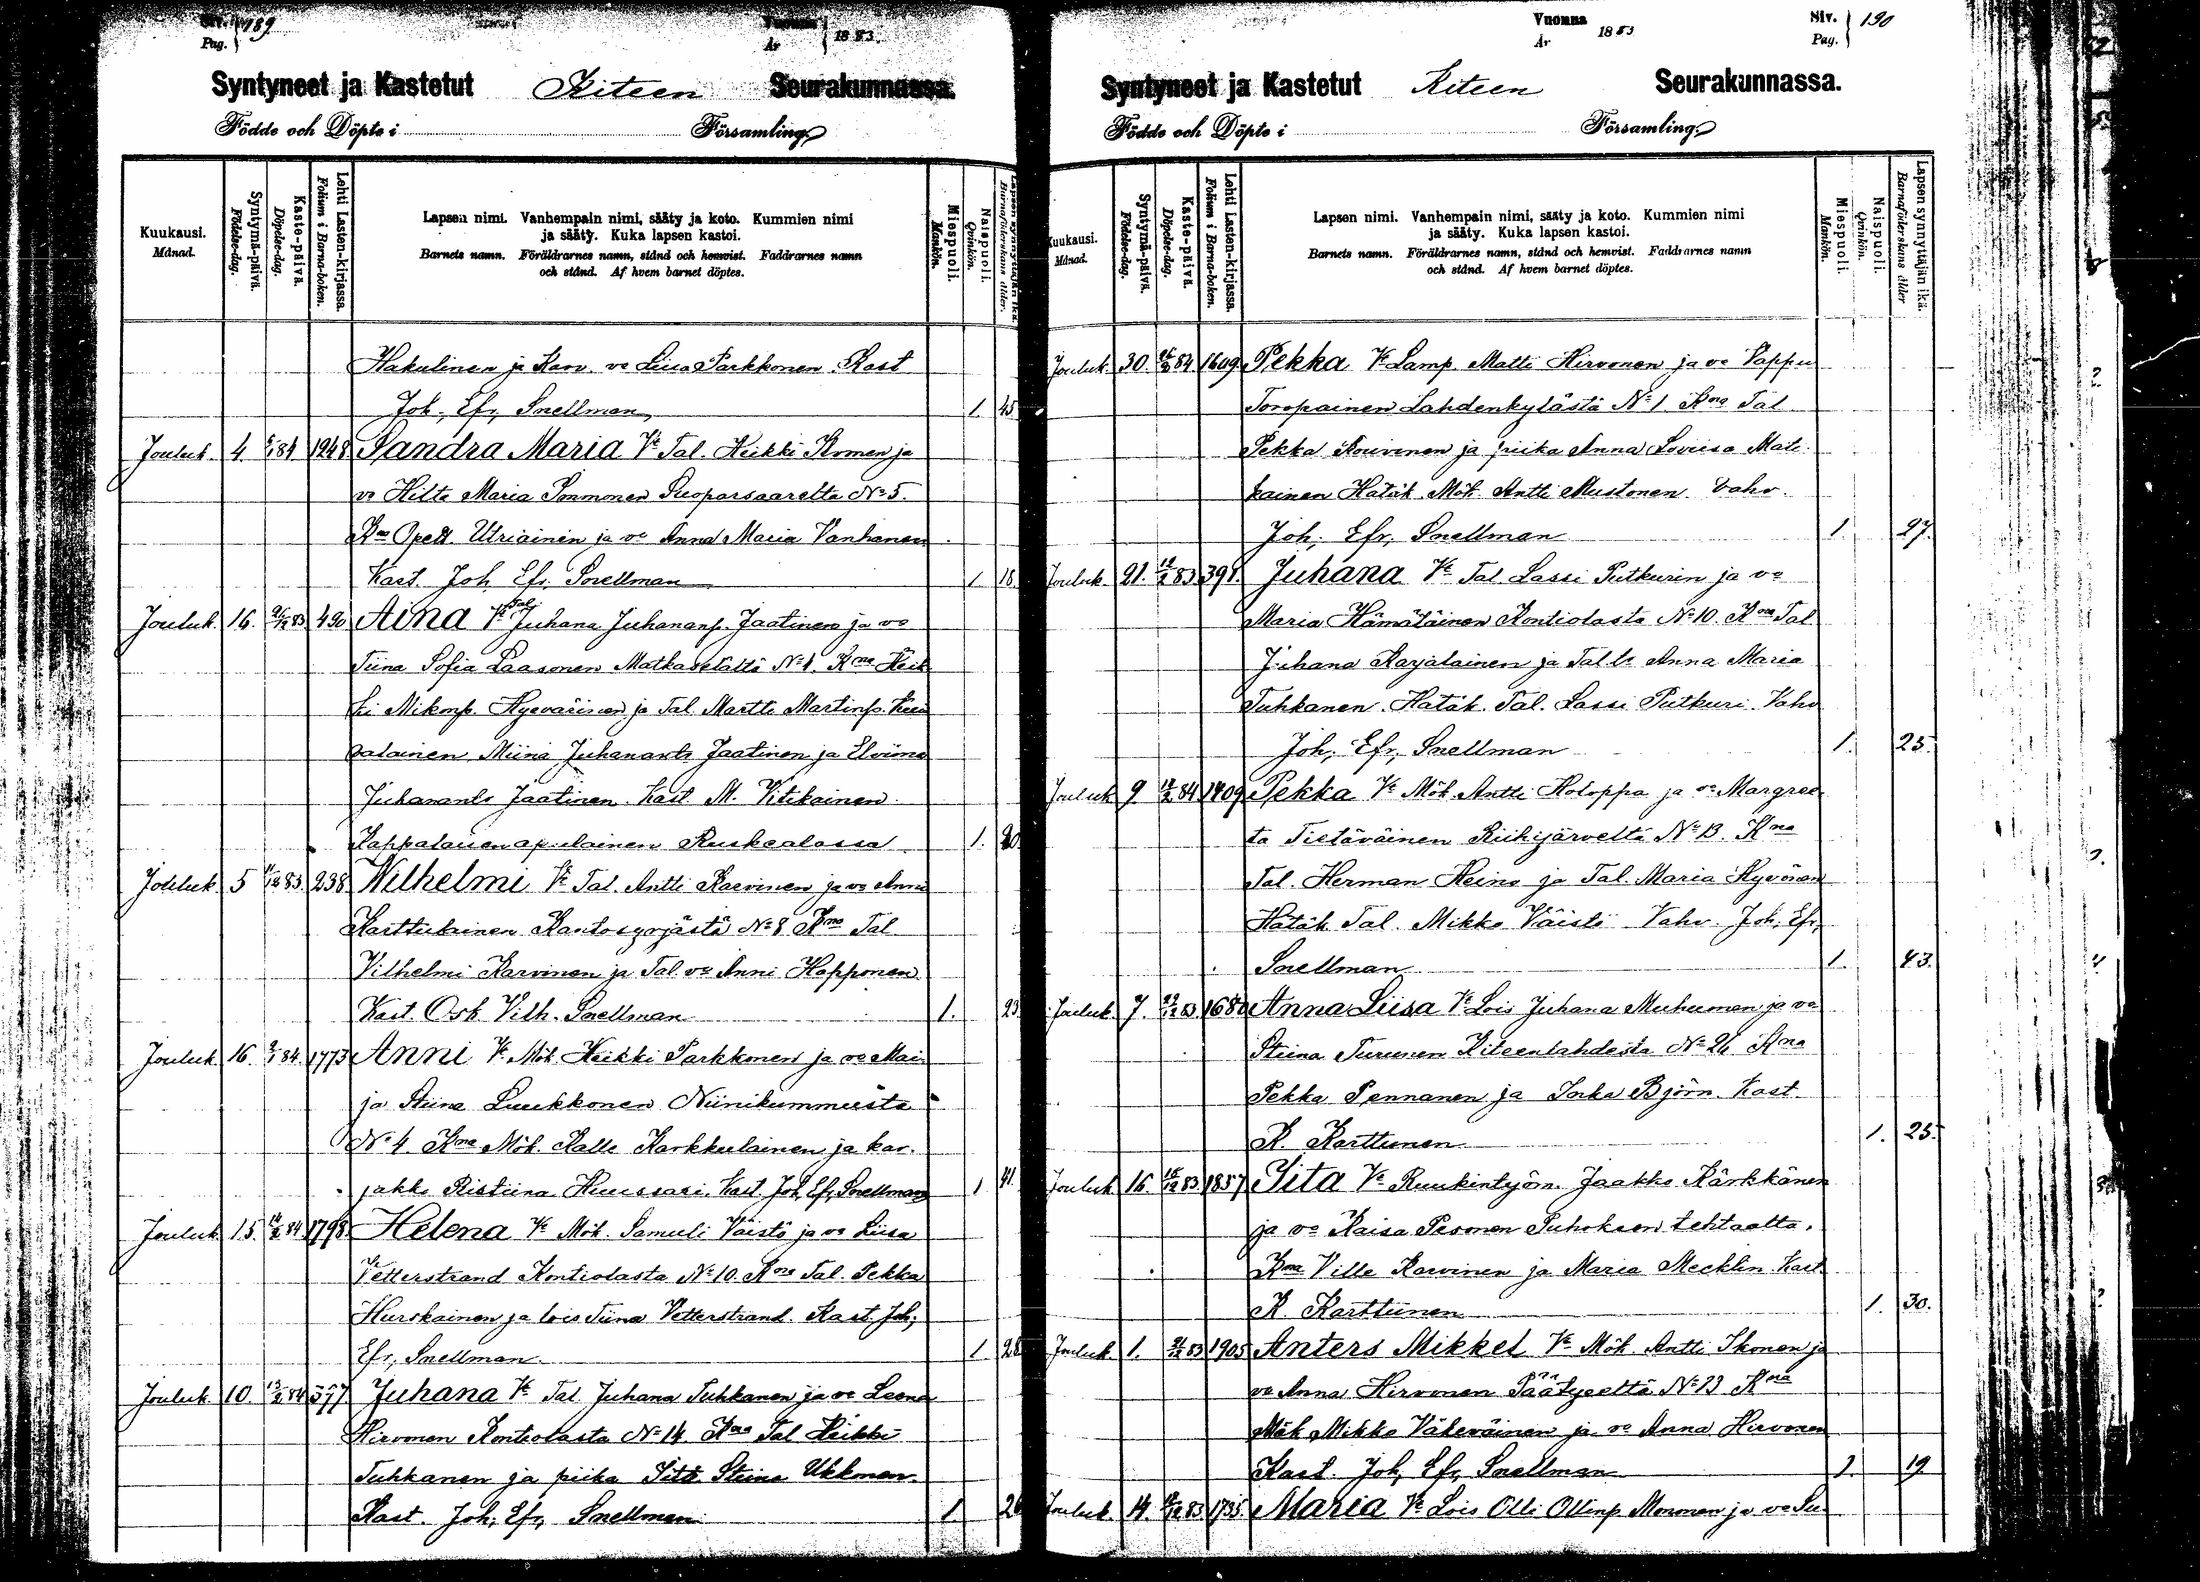 Siv. Pag. 189
Vuonna År 1883.
Syntyneet ja Kastetut Kiteen Seurakunnassa.
Födde och Döpte i Församling
Kuukausi. Månad.
Syntymä-päivä. Födelse-dag.
Kaste-päivä. Döpelse-dag.
Lehti Lasten-kirjassa. Folium i Barna-boken.
Lapsen nimi. Vanhempain nimi, sääty ja koto. Kummien nimi
ja sääty. Kuka lapsen kastoi.
Barnets namn. Föräldrarnes namn, stånd och hemvist. Faddrarnes namn
och stånd. Af hvem barnet döptes.
Miespuoli. Mankön.
Naispuoli. Qvinkön.
Lapsen synnyttäjän ikä. Barnaföderskans ålder.
Hakulinen ja Karv. vo Liisa Parkkonen. Kast
Joh. Efr. Snellman 1. 45
Jouluk. 4. 84 1248 Sandra Maria Vt Tal. Heikki Kromen ja
vo Hilta Maria Sommonen Suoparsaarelta No 5.
Kna Opett. Utriainen ja vo Anna Maria Vanhanen
Kast. Joh. Efr. Snellman 1 18
Jouluk. 16. 83 490 Aina Vt Tal. Juhana Juhananp. Jaatinen ja vo
Tiina Sofia Laasonen Matkaselältä No 1. Kna Heik
ki Mikonp. Hyvärinen ja Tal. Martti Martinp.
valainen Miina Juhanants Jaatinen ja Elviina
Juhanants Jaatinen. Kast. M. Vitikainen.
Kappalaisenapulainen Ruskealassa 1. 20
Jouluk. 5 83 238 Wilhelmi Vt Tal. Antti Karvinen ja vo Anna
Karttulainen Kantosyrjästä No 8 Kna Tal
Vilhelmi Karvinen ja Tal. vo Anni Happonen
Kast. Osk. Vilh. Snellman 1. 23
Jouluk. 16. 84 1773 Anni Vt Mök. Heikki Parkkonen ja vo Mai
ja Stiina Luukkonen Niinikummusta
No 4. Kna Mök. Kalle Karkkulainen ja kar.
jakko Ristiina Huussari. Kast. Joh. Efr. Snellman 1 41.
Jouluk. 15. 84 1798 Helena Vt Mök. Samuli Väistö ja vo Liisa
Vetterstrand Kontiolasta No 10. Kna Tal. Pekka
Hurskainen ja lois Tiina Vetterstrand. Kast. Joh.
Efr. Snellman. 1. 28
Jouluk. 10. 84 377 Juhana Vt Tal Juhana Tuhkanen ja vo Leena
Hirvonen Kontiolasta No 14. Kna Tal Heikki
Tuhkanen ja piika Iita Stiina Ukkonen.
Kast. Joh. Efr. Snellman. 1. 26
Vuonna År 1883
Siv. Pag. 190
Syntyneet ja Kastetut Kiteen Seurakunnassa.
Födde och Döpte i Församling
Kuukausi. Månad.
Syntymä-päivä. Födelse-dag.
Kaste-päivä. Döpelse-dag.
Lehti Lasten-kirjassa. Folium i Barna-boken.
Lapsen nimi. Vanhempain nimi, sääty ja koto. Kummien nimi
ja sääty. Kuka lapsen kastoi.
Barnets namn. Föräldrarnes namn, stånd och hemvist. Faddrarnes namn
och stånd. Af hvem barnet döptes.
Miespuoli. Mankön.
Naispuoli. Qvinkön.
Lapsen synnyttäjän ikä. Barnaföderskans ålder
Jouluk. 30. 84 1609 Pekka Vt Lamp. Matti Hirvonen ja vo Pappu
Toropainen Lahdenkylästä No 1 Kna Tal
Pekka Kouvonen ja piika Anna Loviisa Mati
kainen Hätäk. Mök. Antti Mustonen. Vahv.
Joh. Efr. Snellman 1. 27.
Jouluk. 21. 83 391. Juhana Vt Tal Lassi Putkurin ja vo
Maria Hämäläinen Kontiolasta No 10. Kna Tal
Juhana Karjalainen ja Tal. tr Anna Maria
Tuhkanen. Hätäk. Tal. Lassi Putkuri. Vahv
Joh. Efr. Snellman 1. 25.
Jouluk 9 84 1409 Pekka Vt Mök. Antti Holoppa ja vo Margree
ta Tietäväinen Riihijärveltä No 13. Kna
Tal. Herman Heino ja Tal. Maria Kyvönen
Hätäk Tal. Mikko Väistö Vahv. Joh. Efr.
Snellman 1. 43.
Jouluk 7. 83 1680 Anna Liisa Vt Lois Juhana Muhonen ja vo
Stiina Turunen Kiteenlahdesta No 26 Kna
Pekka Pennanen ja Inka Björn. Kast.
K. Karttunen 1. 25.
Jouluk 16. 83 1857 Iita Vt Ruukintyöm. Jaakko Kärkkänen
ja vo Kaisa Pesonen Puhoksen tehtaalta.
Kna Ville Karvinen ja Maria Mecklin Kast.
K. Karttunen 1. 30.
Jouluk. 1. 83 1905 Anters Mikkel Vt Mök Antti Ikonen ja
vo Anna Hirvonen Päätyeeltä No 13 Kna
Mök Mikko Väkeväinen ja vo Anna Hirvonen
Kast. Joh. Efr. Snellman 1. 19
Jouluk. 14. 83 1735 Maria Vt Lois Olli Ollinp Mononen ja vo Su